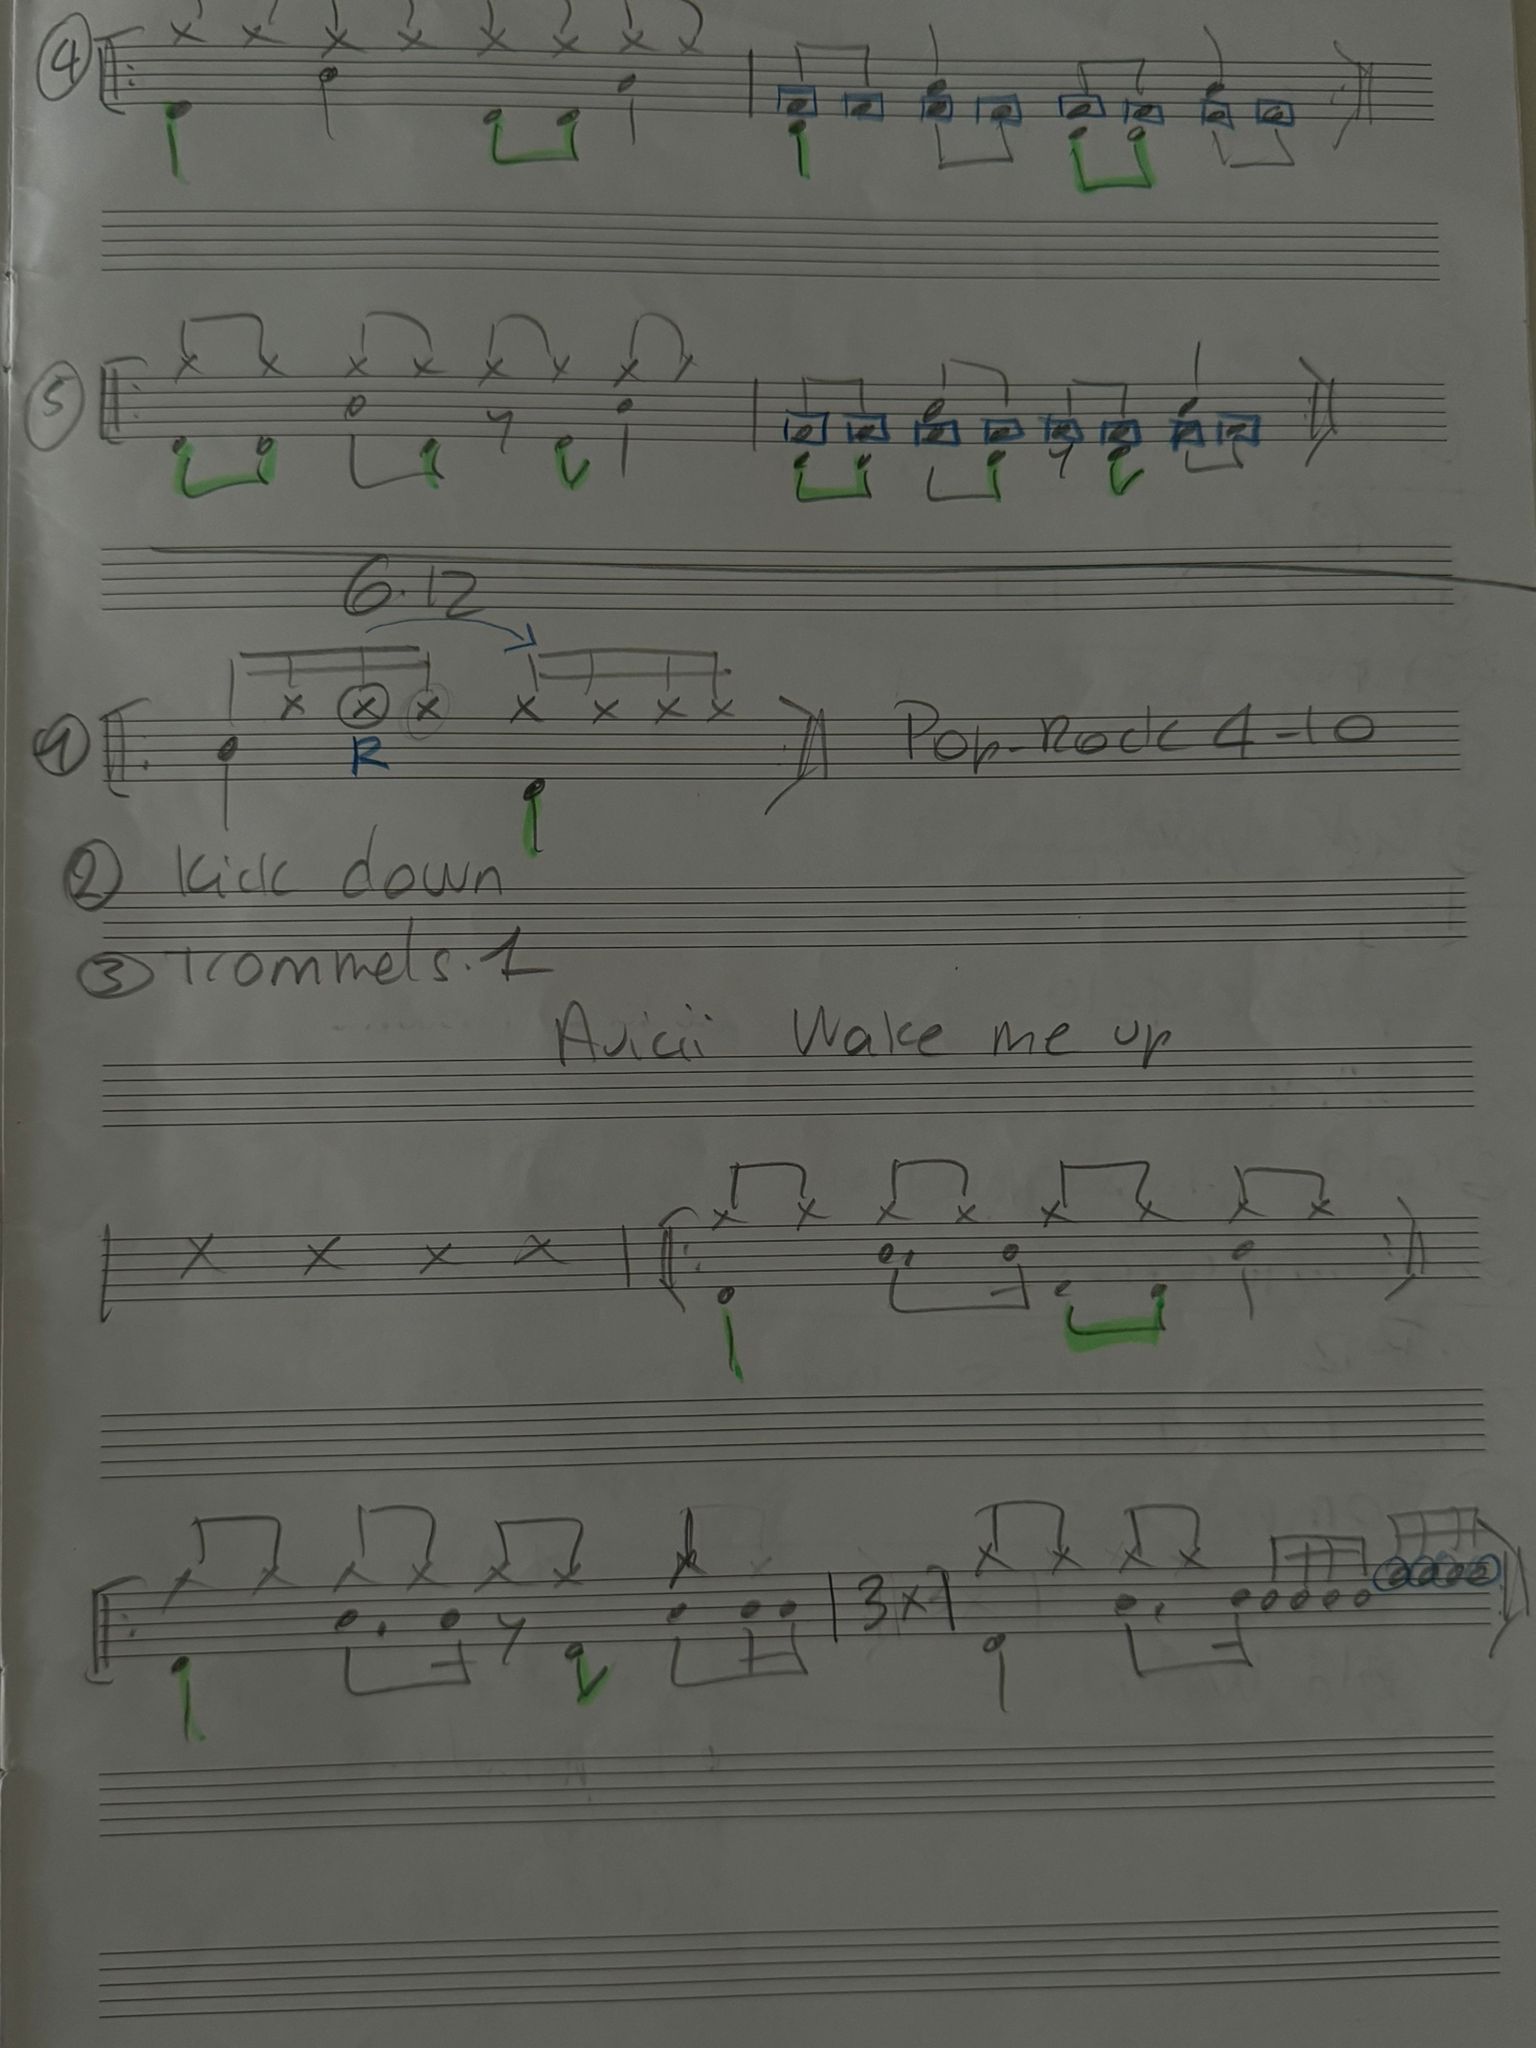 4
5
6.12
1 Pop-Rock 4-10
R
2 Kick down
3 Trommels. 1
Avicii Wake me up
3x